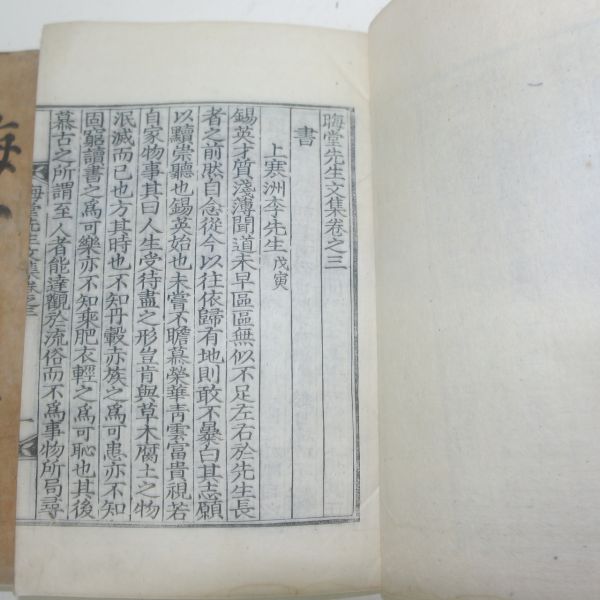 晦堂先生文集卷之三
書
上寒洲李先生 戊寅
錫英才質淺薄聞道未早區區無似不足左右於先生長
者之前然自念從今以往依歸有地則敢不暴白其志願
以黷崇聽也錫英始也未嘗不瞻慕榮華靑雲富貴視若
自家物事其曰人生受待盡之形豈肯與草木腐土之物
泯滅而已也方其時也不知丹轂赤族之爲可患亦不知
固窮讀書之爲可樂亦不知乘肥衣輕之爲可恥也其後
慕古之所謂至人者能達觀於流俗而不爲事物所局尋
晦堂先生文集卷之三
一